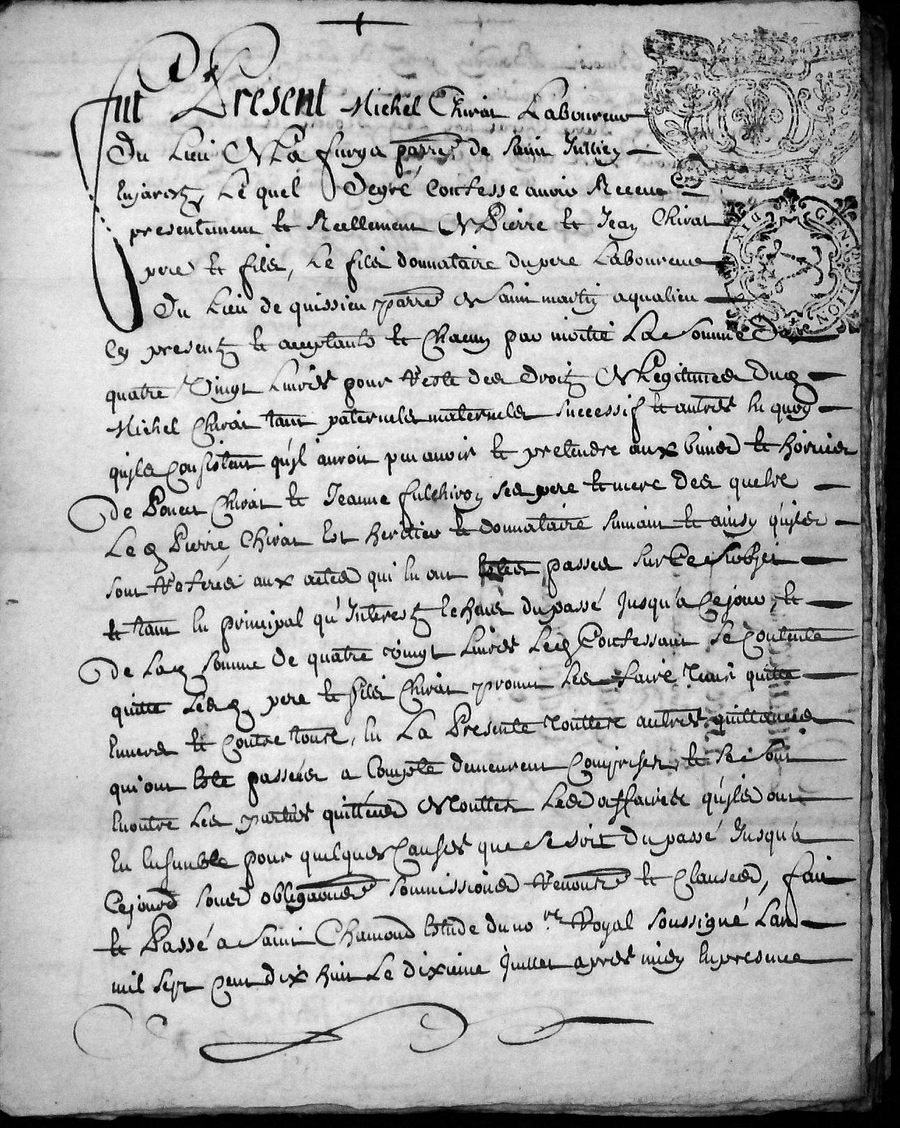 Fut Present Michel Chirat Laboureur
Du Lieu de La furya parre de saint Jullien
Enjaretz, Le quel Degré Confesse avoir Receu
presentement et Reellement de Pierre et Jean Chirat
pere et fils, Le fils donnataire du pere Laboureurs
Du Lieu de quissieu parre de Saint martin aqualieu
Cy presentz et acceptants et Chacun par moitié La Somme De
quatre Vingt Livres pour Reste des Droitz de Legitimes dud
Michel Chirat tant paternels maternels Successif et autres En quoy
quils Consistent quil auroit peu avoir et pretendre aux biens et hoiries
de Poncet Chirat et Jeanne fulchiron ses pere et mere des quels
Led Pierre Chirat Est heritier et donnataire Suivant et ainsy quils
sont Referés aux actes qui En ont Estes passes Sur Ce Subjet
et tant En principal qu'Interestz Echeus du passé Jusqu'a Cejour, et
de Lad somme de quatre vingt Livres Led Confessant Se Contente
quitte Lesd pere et fils Chirat promet Les faire Tenir quitte
Envers et Contre tous, En La Presente Touttes autres quittances
qu'ont Esté passées a Compte demeurent Comprises, et Se Sont
Enoutre Les parties quittées de Touttes Les affaires quils ont
En Ensemble pour quelques Causes que Se Soit Du passé Jusqu'a
Cejourd sous obligaons Soumissions Renons et Clauses, fait
et Passé a Saint Chamond Etude du nore Royal Soussigné Lan
mil Sept Cent dix huit Le dixieme Juillet apres midy En presence
GEN DE LION